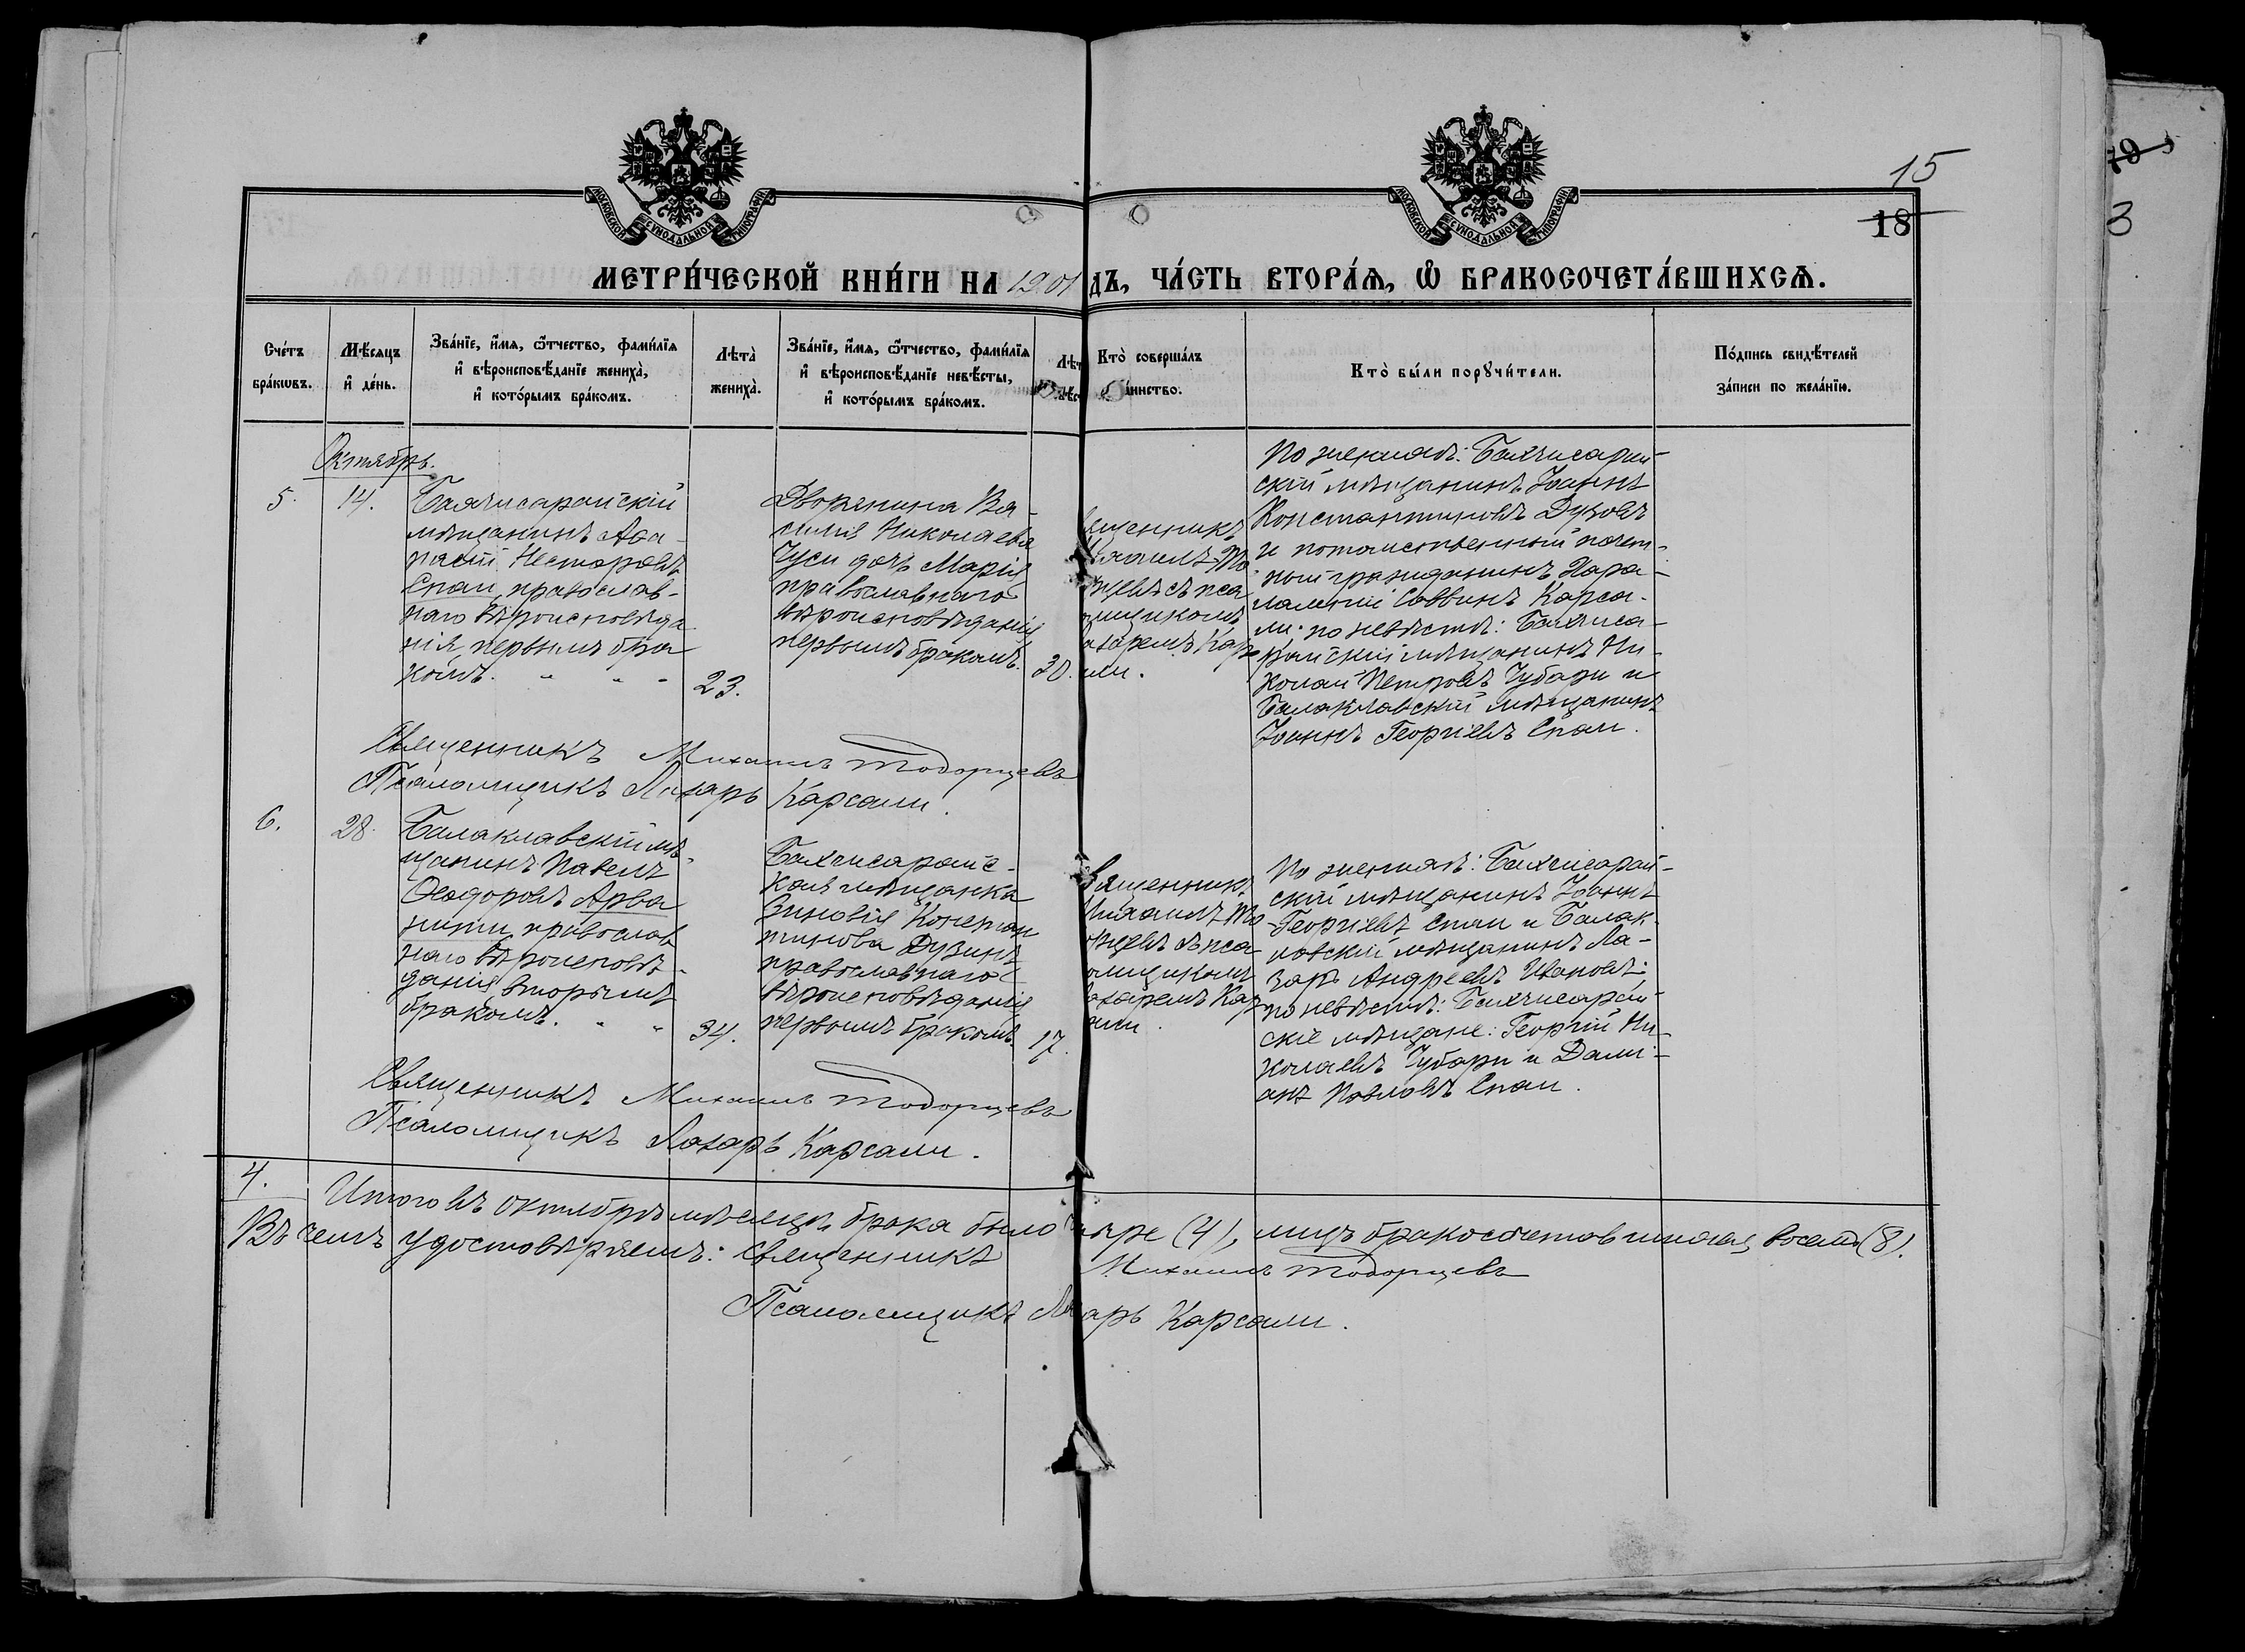 15
18
МОСКОВСКОЙ СѴНОДАЛЬНОЙ ТИПОГРАФІИ
МОСКОВСКОЙ СѴНОДАЛЬНОЙ ТИПОГРАФІИ
МЕТРИ́ЧЕСКОЙ КНИ́ГИ НА 1901 ДЪ, ЧА́СТЬ ВТОРА́Я, Ѡ БРАКОСОЧЕТА́ВШИХСѦ.
Сче́тъ
бра́кѡвъ.
Мѣ́сяцъ
и́ де́нь.
Зва́нїе, и́мя, ѻ́тчество, фами́лїя
и́ вѣроисповѣ́данїе жениха̀,
и́ кото́рымъ бра́комъ.
Лѣта̀
жениха̀.
Зва́нїе, и́мя, ѻ́тчество, фами́лїя
и́ вѣроисповѣ́данїе невѣ́сты,
и́ кото́рымъ бра́комъ.
Лѣт
вѣс
Кто̀ соверша́лъ
аинство.
Кто̀ бы́ли порꙋчи́тели.
По́дпись свидѣ́телей
за́писи по жела́нїю.
Октябрь.
5.
14.
Бахчисарайскій
мѣщанинъ Аѳа-
насій Несторовъ
Спаи, православ-
наго вѣроисповѣда
нія, первымъ бра
комъ.
23.
Дворянина Ва-
силія Николаева
Чуси дочь Марія
православнаго
вѣроисповѣданія
первымъ бракомъ.
20.
ященникъ
Михаилъ То
рцевъ съ пса
мщикомъ
азаремъ Кар
али.
По женихѣ: Бахчисарай-
скій мѣщанинъ Іоаннъ
Константиновъ Дузовъ
и потомственный почет-
ный гражданинъ Хара-
лампій Саввинъ Карса-
ли; по невѣстѣ: Бахчиса-
райскій мѣщанинъ Ни-
колай Петровъ Чубари и
Балаклавскій мѣщанинъ
Іоаннъ Георгіевъ Спаи.
Священникъ Михаилъ Тодорцевъ
Псаломщикъ Лазарь Карсали.
6.
28.
Балаклавскій мѣ-
щанинъ Павелъ
Ѳеодоровъ Арва
нити, православ
наго вѣроисповѣ-
данія, вторымъ
бракомъ.
34.
Бахчисарайс-
кая мѣщанка
Зиновія Констан
тинова Дузинъ
православнаго
вѣроисповѣданія
первымъ бракомъ.
17.
вященникъ
Михаилъ То
рцевъ съ пса-
омщикомъ
азаремъ Кар
али.
По женихѣ: Бахчисарай-
скій мѣщанинъ Іоаннъ
Георгіевъ Спаи и Балак-
лавскій мѣщанинъ Ла-
зарь Андреевъ Ивановъ;
по невѣстѣ: Бахчисарай-
скіе мѣщане: Георгій Ни-
колаевъ Чубари и Дамі-
анъ Павловъ Спаи.
Священникъ Михаилъ Тодорцевъ
Псаломщикъ Лазарь Карсали.
4.
Итого въ октябрѣ мѣсяцѣ брака было тыре (4), лицъ бракосочетавшихся восемь (8).
Въ чемъ удостовѣряемъ: Священникъ Михаилъ Тодорцевъ
Псаломщикъ Лазарь Карсали.
3